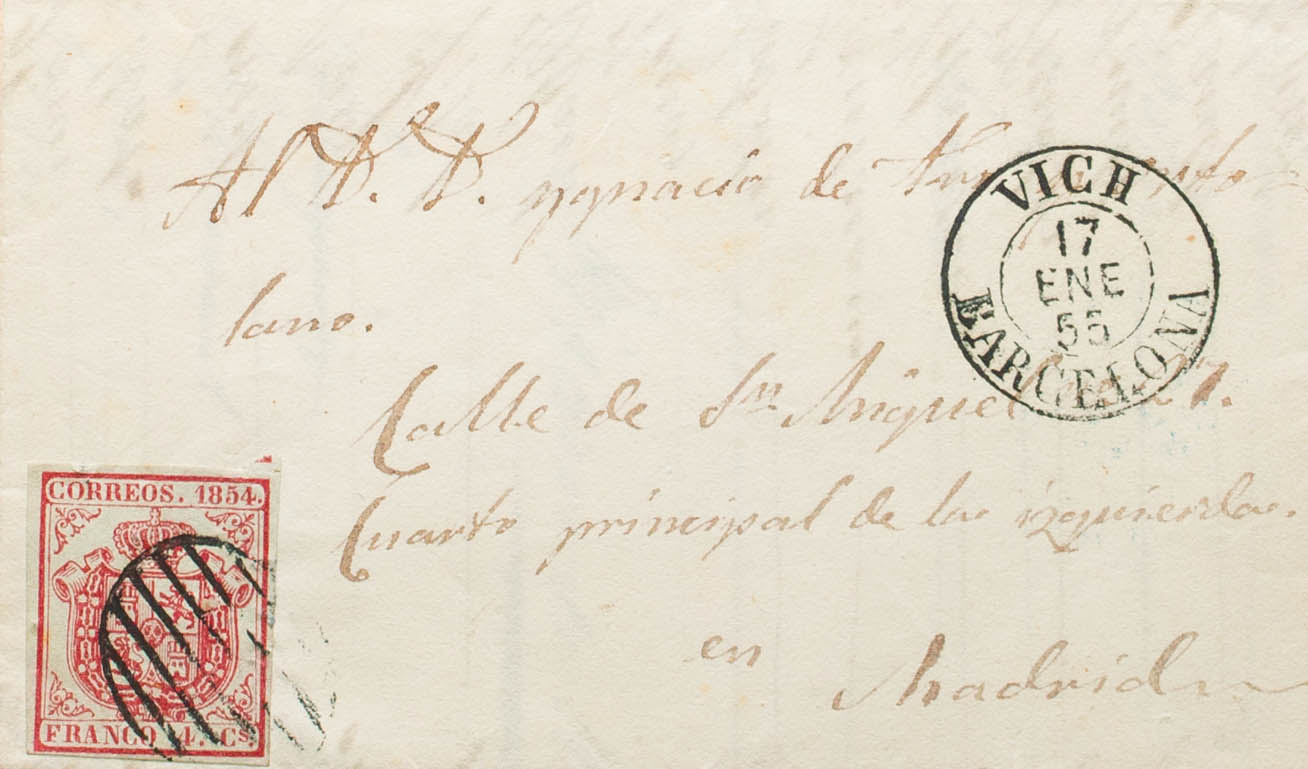 Al D. D. Ygnacio de
lano.
Calle de Sn Miguel 27.
Cuarto principal de la izquierda.
en Madrid
VICH
17
ENE
55
BARCELONA
CORREOS. 1854.
FRANCO 4. Cs.